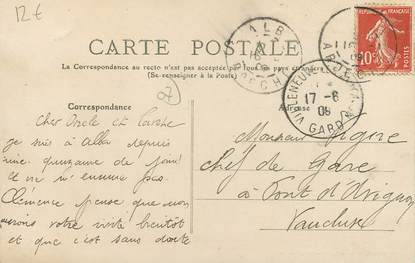 12€
CARTE POSTALE
La Correspondance au recto n'est pas acceptée par tous les pays étrangers
(Se renseigner à la Poste)
Correspondance
Adresse
ALBA
ARDÈCHE
VILLENEUVE
17-8
09
GARD
10c
POSTES
Cher Oncle et Tante
je suis à Alba depuis
une quinzaine de jours
je ne m'ennuie pas
Clémence pense que nous
aurons votre visite bientôt
et que c'est sans doute
Monsieur
Chef de Gare
à Pont d'Avignon
Vaucluse